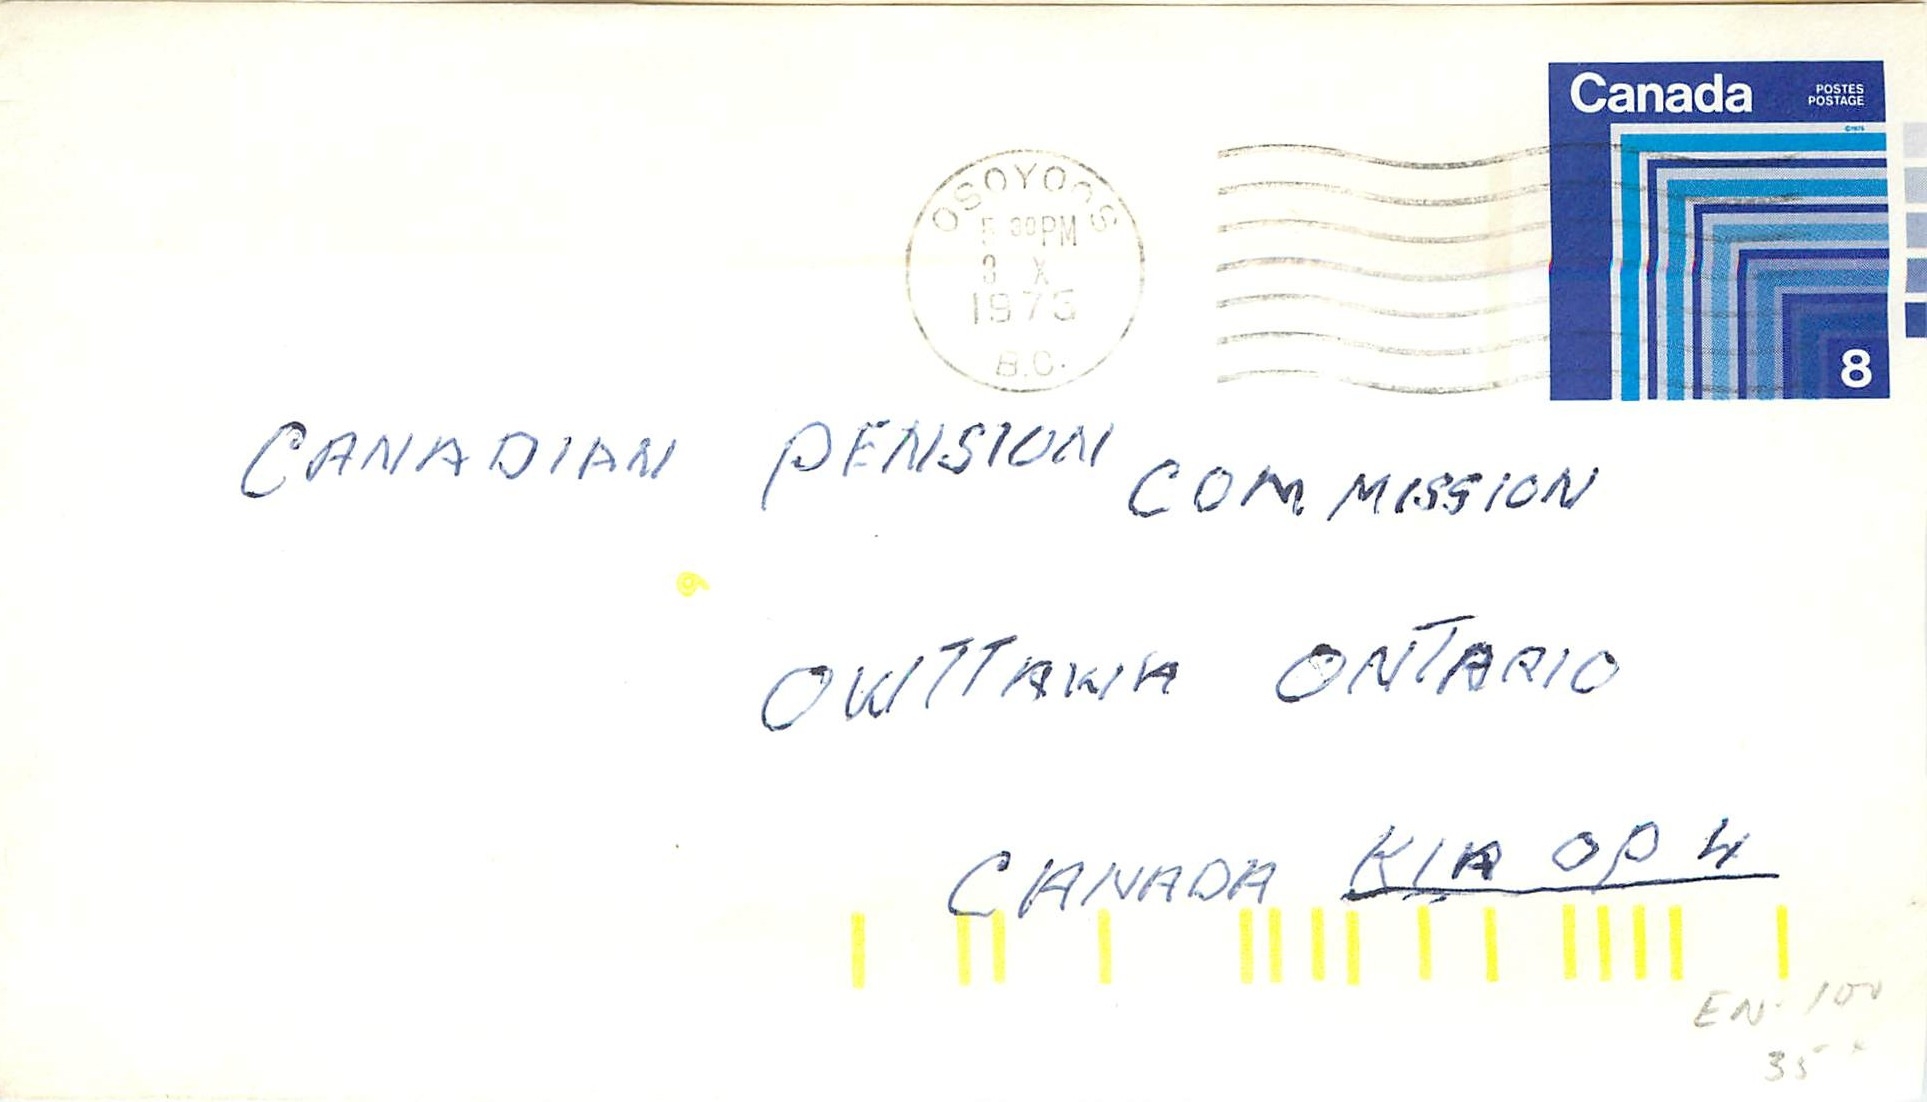 Canada POSTES
POSTAGE
©1975
OSOYOOS
5 30PM
3 X
1975
B.C.
8
CANADIAN PENSION COMMISSION
OWTTAWA ONTARIO
CANADA K1A OP4
EN-100
35